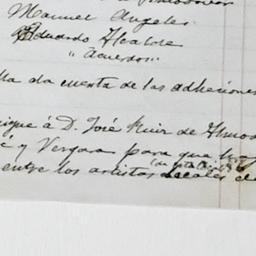 Manuel Angeles
Eduardo Alcalde
"Acuerdos"
da cuenta de las adhesiones
á D. José Ruiz de Almod
y Vergara para que
entre los artistas locales